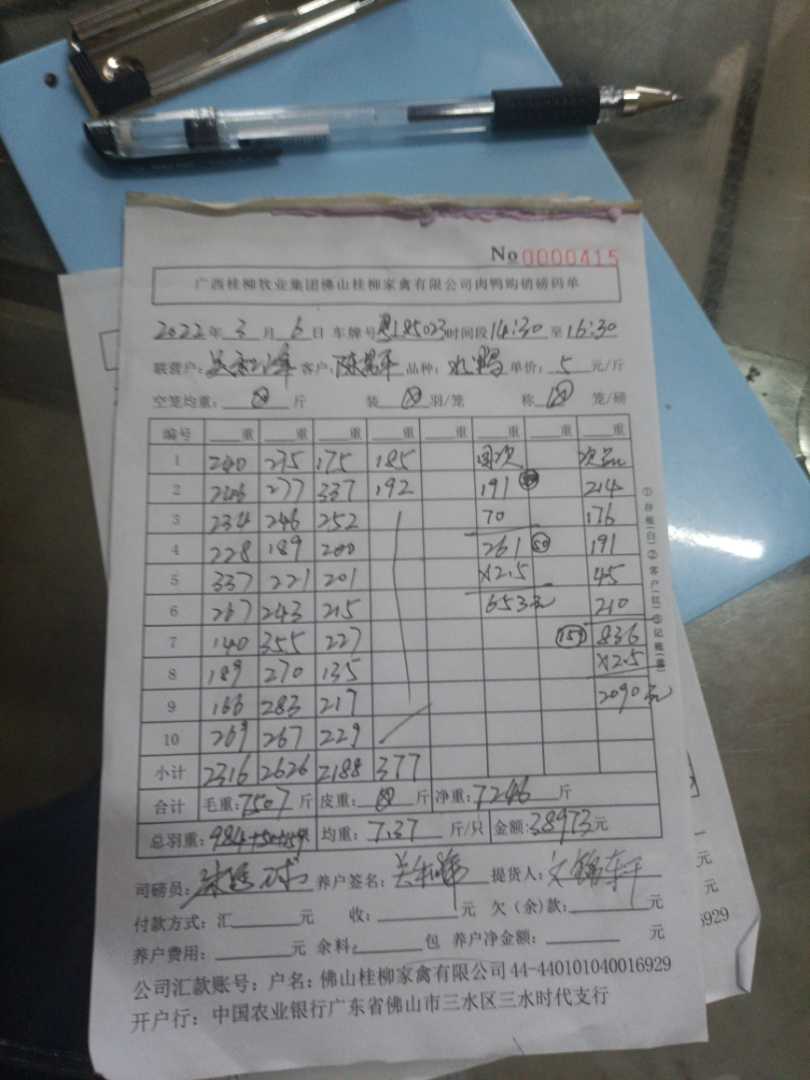 No 0000415
广西桂柳牧业集团佛山桂柳家禽有限公司肉鸭购销磅码单
2022年 3月 6日 车牌号 185023 时间段 14:30 至 16:30
联营户: 客户: 陈 平 品种: 水鸭 单价: 5 元/斤
空笼均重: 斤 装 羽/笼 称 笼/磅
编号 重 重 重 重 重 重 重 重
1 240 235 175 185 次
2 246 277 337 192 191 214
3 234 246 252 70 176
4 228 189 200 261 50 191
5 337 221 201 ×2.5 45
6 267 243 215 653元 210
7 140 355 227 159 836
8 189 270 135 ×2.5
9 166 283 217 2090元
10 269 267 229
小计 2316 2626 2188 377
合计 毛重:7507斤 皮重: 斤 净重:7246斤
总羽重:984+50+159 均重:7.37斤/只 金额:38973元
司磅员: 养户签名: 提货人:
付款方式:汇 元 收: 元 欠(余)款: 元
养户费用: 元 余料: 包 养户净金额: 元
公司汇款账号:户名:佛山桂柳家禽有限公司44-440101040016929
开户行:中国农业银行广东省佛山市三水区三水时代支行
①存根(白)②客户(红)③记账(黄)
元
元
元
5929